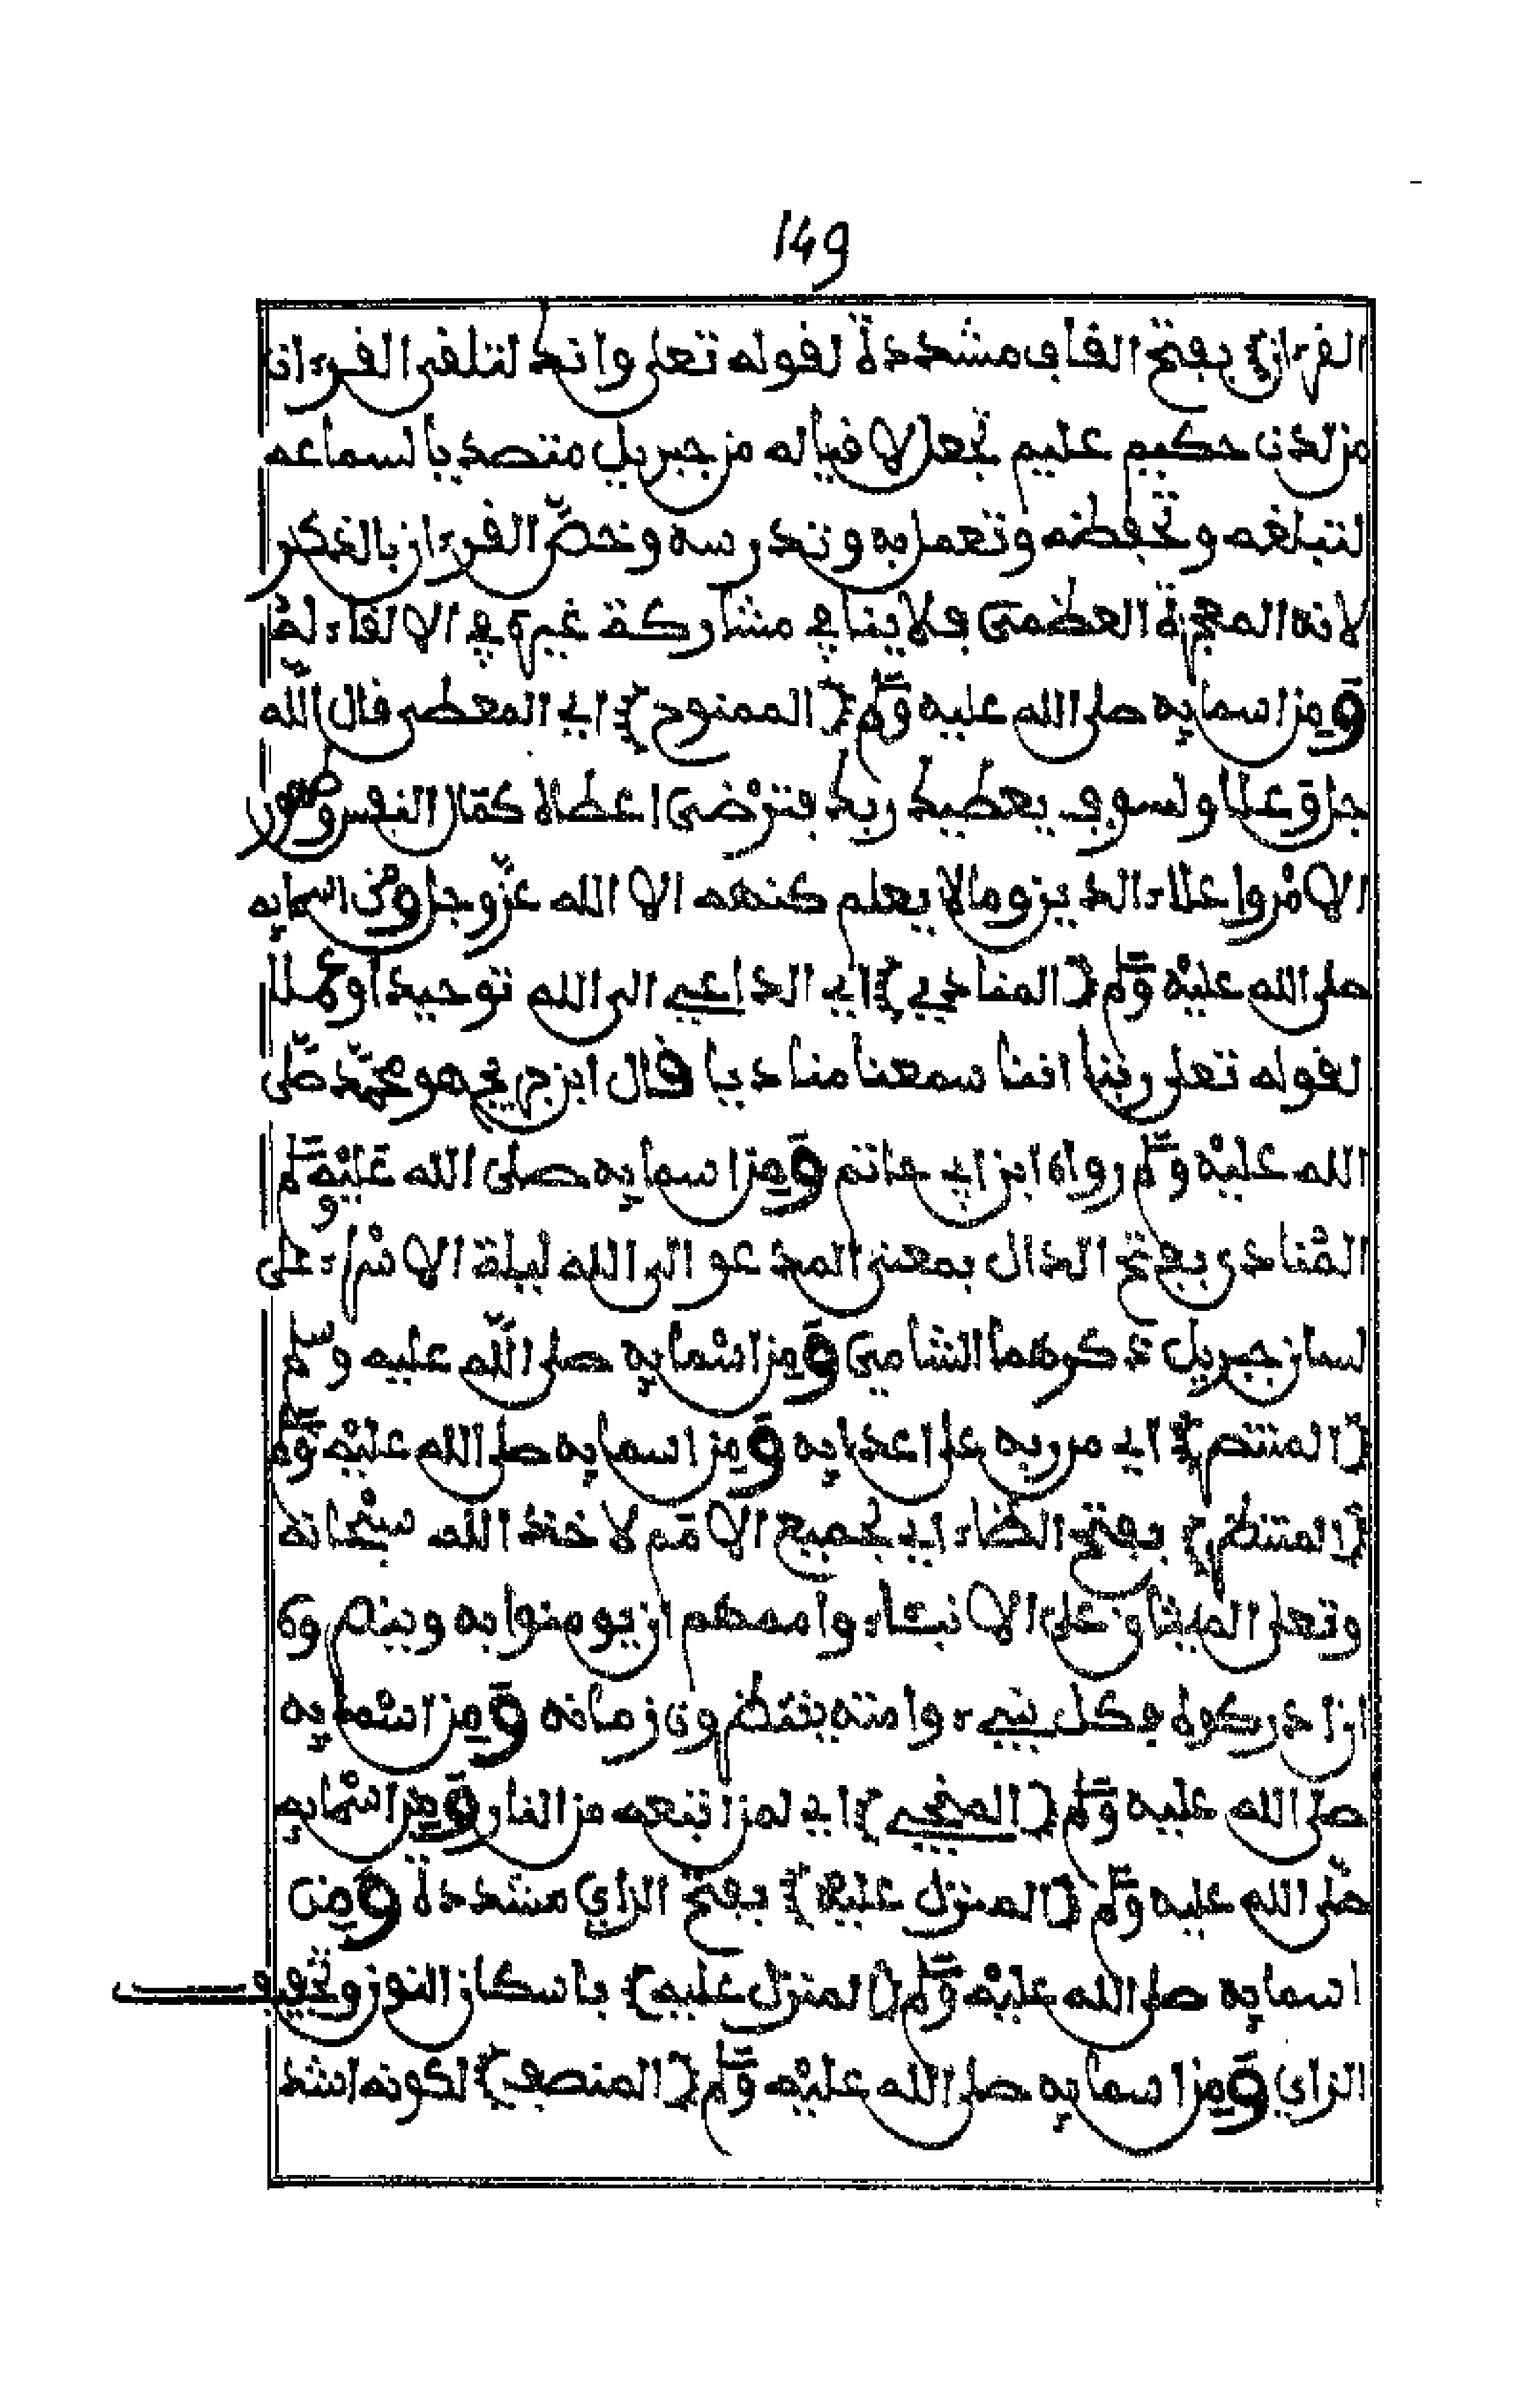 149
القرءان} بفتح القاف مشددة لقوله تعلى وانك لتلقى القرءان
من لدن حكيم عليم تجعل لاقياله من جبريل متصديا لسماعه
لتبلغه وتحفظه وتعمل به وتدرسه وخصّ القرءان بالذكر
لانه المعجزة العظمى فلا ينافي مشاركة غيره في الالقاء له
ومن اسمايه صلى الله عليه وسلم {الممنوح} اي المعطى قال الله
جل وعلا ولسوف يعطيك ربك فترضى اعطاه كمال النفس وظهور
الامر واعلاء الدين وما لا يعلم كنهه الا الله عزّ وجل ومن اسمايه
صلى الله عليه وسلم {المنادي} اي الداعي الى الله توحيدا وعملا
لقوله تعلى ربنا اننا سمعنا مناديا قال ابن جريج هو محمّد صلى
الله عليه وسلم رواه ابن ابي حاتم ومن اسمايه صلى الله عليه وسلم
المنادى بفتح الدال بمعنى المدعو الى الله ليلة الاسراء على
لسان جبريل ذكرهما الشامي ومن اسمايه صلى الله عليه وسلم
{المنتصر} اي من ربه على اعدايه ومن اسمايه صلى الله عليه وسلم
{المنتظر} بفتح الظاء اي لجميع الامم لاخذ الله سبحانه
وتعلى الميثاق على الانبياء واممهم ان يومنوا به وينصروه
ان ادركوه فكل نبيء وامته ينتظرون زمانه ومن اسمايه
صلى الله عليه وسلم {المنجي} اي لمن اتبعه من النار ومن اسمايه
صلى الله عليه وسلم {المنزل عليه} بفتح الزاي مشددة ومن
اسمايه صلى الله عليه وسلم {المنزل عليه} باسكان النون وتخفيف
الزاي ومن اسمايه صلى الله عليه وسلم {المنصف} لكونه اشد